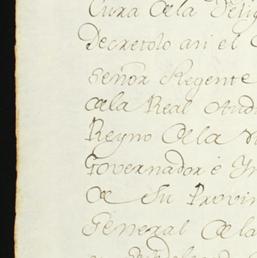 Cura de la Relig
Decretolo asi el S
Señor Regente
de la Real Audi
Reyno de la N
Governador é In
de Su Provin
General de la